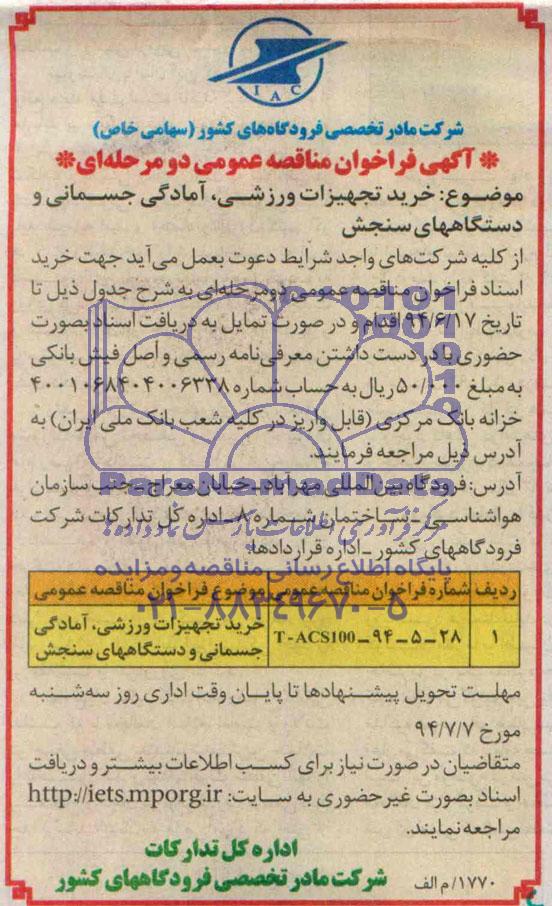 IAC
شرکت مادر تخصصی فرودگاه‌های کشور (سهامی خاص)
* آگهی فراخوان مناقصه عمومی دو مرحله‌ای *
موضوع: خرید تجهیزات ورزشی، آمادگی جسمانی و
دستگاههای سنجش
از کلیه شرکت‌های واجد شرایط دعوت بعمل می‌آید جهت خرید
اسناد فراخوان مناقصه عمومی دومرحله‌ای به شرح جدول ذیل تا
تاریخ ۹۴/۶/۱۷ اقدام و در صورت تمایل به دریافت اسناد بصورت
حضوری با در دست داشتن معرفی‌نامه رسمی و اصل فیش بانکی
به مبلغ ۵۰۰/۰۰۰ ریال به حساب شماره ۴۰۰۱۰۶۸۴۰۴۰۰۶۳۳۸
خزانه بانک مرکزی (قابل واریز در کلیه شعب بانک ملی ایران) به
آدرس ذیل مراجعه فرمایند.
آدرس: فرودگاه بین‌المللی مهرآباد ـ خیابان معراج ـ جنب سازمان
هواشناسی ـ ساختمان شماره ۸ ـ اداره کل تدارکات شرکت
فرودگاههای کشور ـ اداره قراردادها
ParsNamadData
مرکز فرآوری اطلاعات پارس نماد داده ها
پایگاه اطلاع رسانی مناقصه و مزایده
۰۲۱-۸۸۳۴۹۶۷۰-۵
ردیف شماره فراخوان مناقصه عمومی موضوع فراخوان مناقصه عمومی
۱ T-ACS100-۹۴-۵-۲۸ خرید تجهیزات ورزشی، آمادگی
جسمانی و دستگاههای سنجش
مهلت تحویل پیشنهادها تا پایان وقت اداری روز سه‌شنبه
مورخ ۹۴/۷/۷
متقاضیان در صورت نیاز برای کسب اطلاعات بیشتر و دریافت
اسناد بصورت غیرحضوری به سایت: http://iets.mporg.ir
مراجعه نمایند.
اداره کل تدارکات
شرکت مادر تخصصی فرودگاههای کشور
۱۷۷۰/م الف